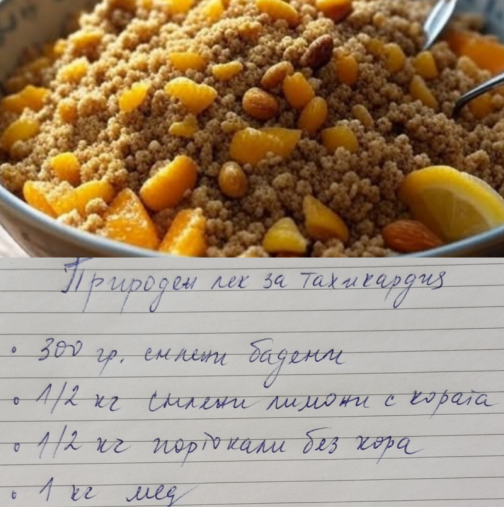 Природен лек за тахикардия
• 300 гр. смлени бадеми
• 1/2 кг смлени лимони с кората
• 1/2 кг портокали без кора
• 1 кг мед